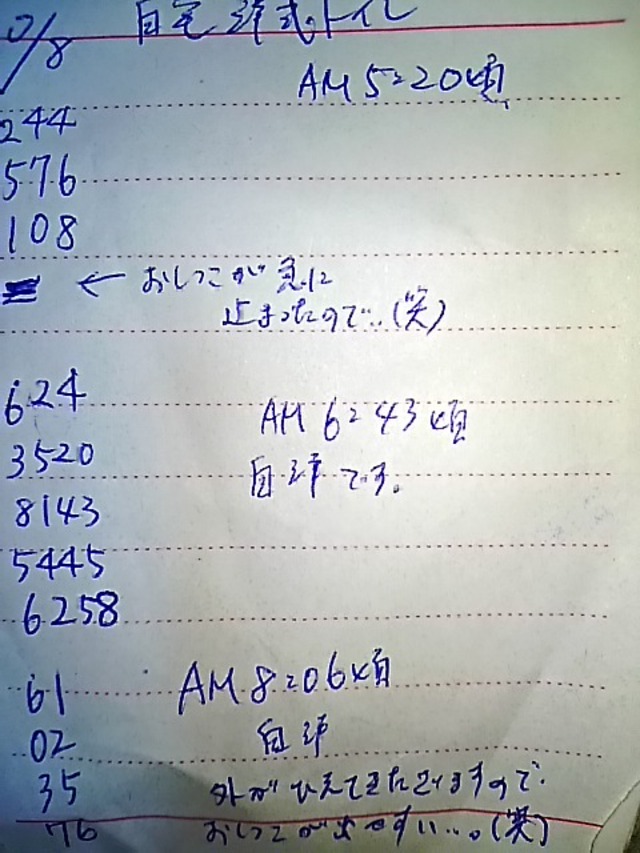 /8 自宅洋式トイレ
AM 5:20頃
244
576
108
← おしっこが 急に
止まったので…(笑)
624 AM 6:43頃
3520 自洋です。
8143
5445
6258
61 AM 8:06頃
02 自洋
35 外がひえてきますので
76 おしっこが (笑)